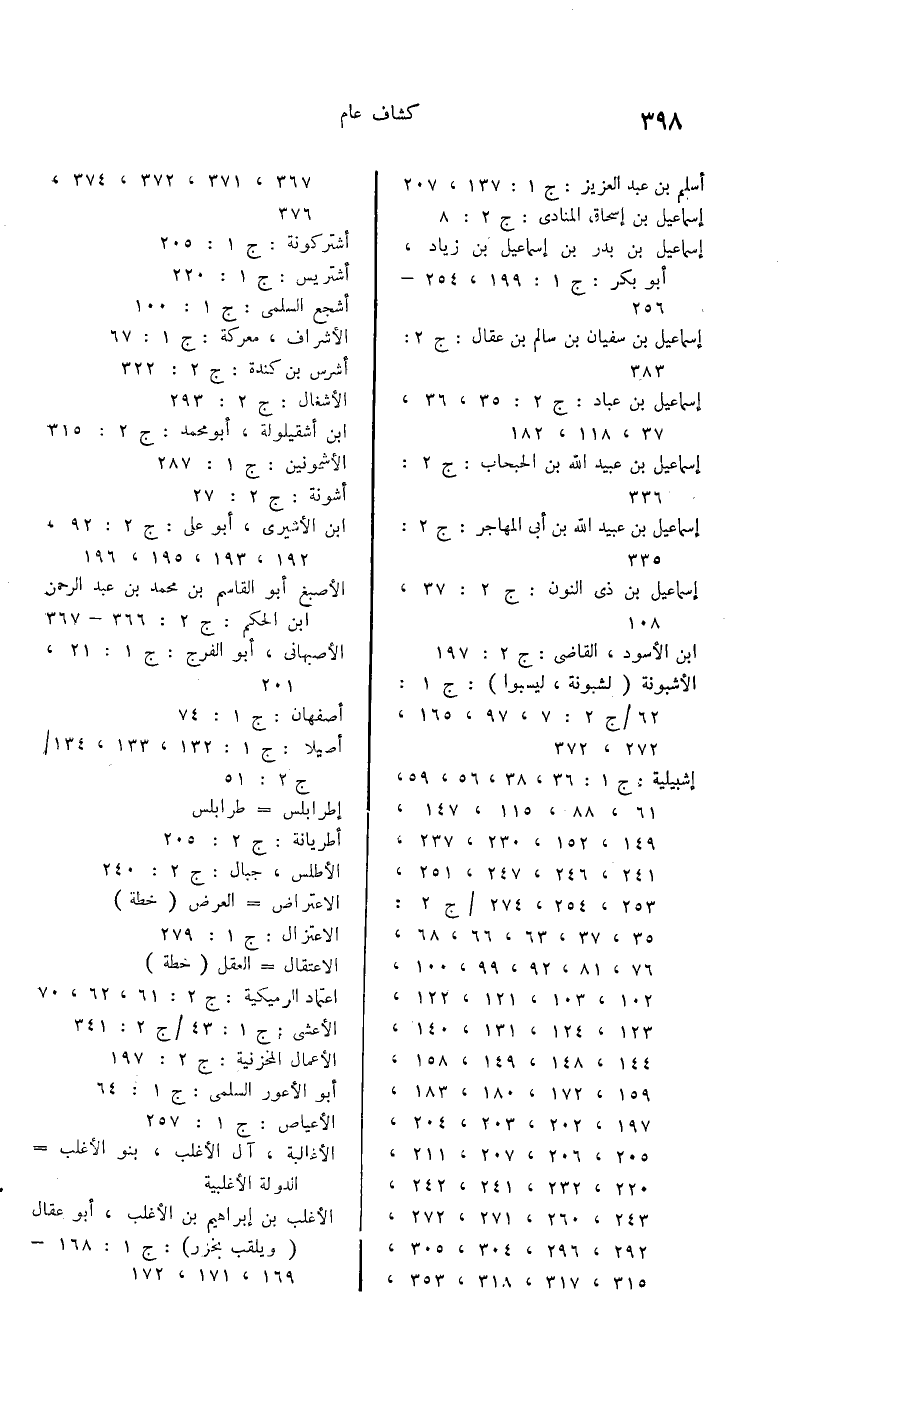 ٣٩٨
كشاف عام
أسلم بن عبد العزيز : ج ١ : ١٣٧ ، ٢٠٧
إسماعيل بن إسحاق المنادى : ج ٢ : ٨
إسماعيل بن بدر بن إسماعيل بن زياد ،
أبو بكر : ج ١ : ١٩٩ ، ٢٥٤ –
٢٥٦
إسماعيل بن سفيان بن سالم بن عقال : ج ٢ :
٣٨٣
إسماعيل بن عباد : ج ٢ : ٣٥ ، ٣٦ ،
٣٧ ، ١١٨ ، ١٨٢
إسماعيل بن عبيد الله بن الحبحاب : ج ٢ :
٣٣٦
إسماعيل بن عبيد الله بن أبى المهاجر : ج ٢ :
٣٣٥
إسماعيل بن ذى النون : ج ٢ : ٣٧ ،
١٠٨
ابن الأسود ، القاضى : ج ٢ : ١٩٧
الأشبونة ( لشبونة ، ليسبوا ) : ج ١ :
٦٢ /ج ٢ : ٧ ، ٩٧ ، ١٦٥ ،
٢٧٢ ، ٣٧٢
إشبيلية : ج ١ : ٣٦ ، ٣٨ ، ٥٦ ، ٥٩ ،
٦١ ، ٨٨ ، ١١٥ ، ١٤٧ ،
١٤٩ ، ١٥٢ ، ٢٣٠ ، ٢٣٧ ،
٢٤١ ، ٢٤٦ ، ٢٤٧ ، ٢٥١ ،
٢٥٣ ، ٢٥٤ ، ٢٧٤ / ج ٢ :
٣٥ ، ٣٧ ، ٦٣ ، ٦٦ ، ٦٨ ،
٧٦ ، ٨١ ، ٩٢ ، ٩٩ ، ١٠٠ ،
١٠٢ ، ١٠٣ ، ١٢١ ، ١٢٢ ،
١٢٣ ، ١٢٤ ، ١٣١ ، ١٤٠ ،
١٤٤ ، ١٤٨ ، ١٤٩ ، ١٥٨ ،
١٥٩ ، ١٧٢ ، ١٨٠ ، ١٨٣ ،
١٩٧ ، ٢٠٢ ، ٢٠٣ ، ٢٠٤ ،
٢٠٥ ، ٢٠٦ ، ٢٠٧ ، ٢١١ ،
٢٢٠ ، ٢٣٢ ، ٢٤١ ، ٢٤٢ ،
٢٤٣ ، ٢٦٠ ، ٢٧١ ، ٢٧٢ ،
٢٩٢ ، ٢٩٦ ، ٣٠٤ ، ٣٠٥ ،
٣١٥ ، ٣١٧ ، ٣١٨ ، ٣٥٣ ،
٣٦٧ ، ٣٧١ ، ٣٧٢ ، ٣٧٤ ،
٣٧٦
أشتركونة : ج ١ : ٢٠٥
أشتريس : ج ١ : ٢٢٠
أشجع السلمى : ج ١ : ١٠٠
الأشراف ، معركة : ج ١ : ٦٧
أشرس بن كندة : ج ٢ : ٣٢٢
الأشغال : ج ٢ : ٢٩٣
ابن أشقيلولة ، أبو محمد : ج ٢ : ٣١٥
الأشمونين : ج ١ : ٢٨٧
أشونة : ج ٢ : ٢٧
ابن الأشيرى ، أبو على : ج ٢ : ٩٢ ،
١٩٢ ، ١٩٣ ، ١٩٥ ، ١٩٦
الأصبغ أبو القاسم بن محمد بن عبد الرحمن
ابن الحكم : ج ٢ : ٣٦٦ – ٣٦٧
الأصبهانى ، أبو الفرج : ج ١ : ٢١ ،
٢٠١
أصفهان : ج ١ : ٧٤
أصيلا : ج ١ : ١٣٢ ، ١٣٣ ، ١٣٤/
ج ٢ : ٥١
إطرابلس = طرابلس
أطريانة : ج ٢ : ٢٠٥
الأطلس ، جبال : ج ٢ : ٢٤٠
الاعتراض = العرض ( خطة )
الاعتزال : ج ١ : ٢٧٩
الاعتقال = العقل ( خطة )
اعتماد الرميكية : ج ٢ : ٦١ ، ٦٢ ، ٧٠
الأعشى : ج ١ : ٤٣ /ج ٢ : ٣٤١
الأعمال المخزنية : ج ٢ : ١٩٧
أبو الأعور السلمى : ج ١ : ٦٤
الأعياص : ج ١ : ٢٥٧
الأغالبة ، آل الأغلب ، بنو الأغلب =
الدولة الأغلبية
الأغلب بن إبراهيم بن الأغلب ، أبو عقال
( ويلقب بخزر) : ج ١ : ١٦٨ –
١٦٩ ، ١٧١ ، ١٧٢